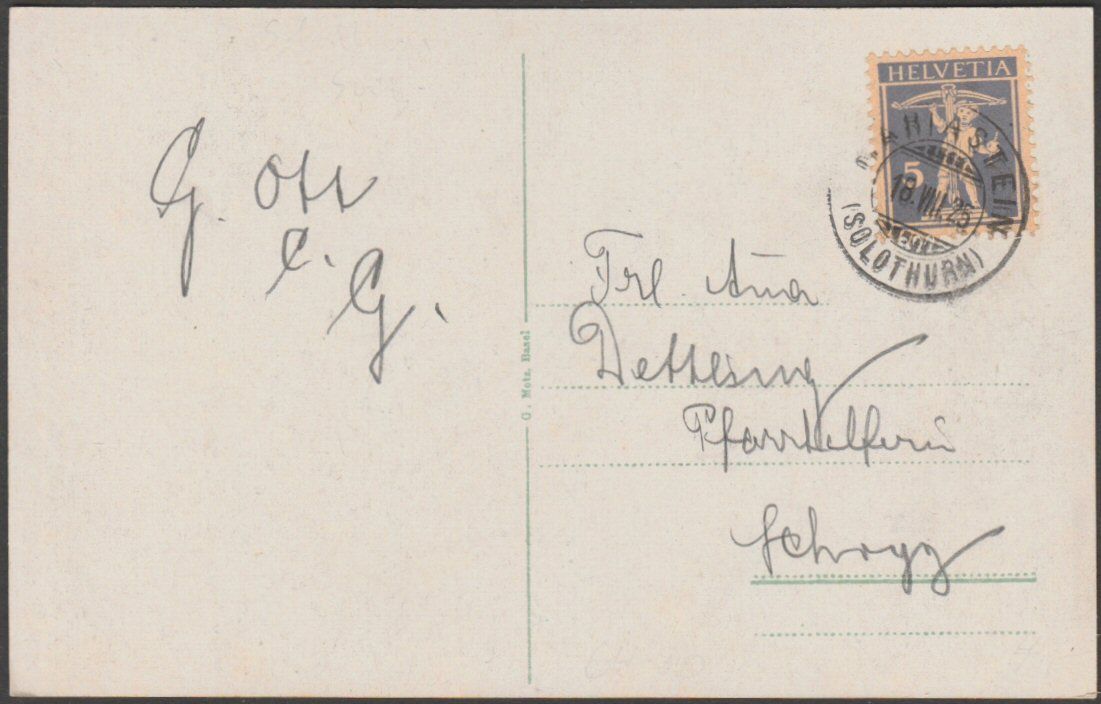 G. Ott
C. G.
HELVETIA
5
MARIASTEIN
18.VIII.25
(SOLOTHURN)
Frl. Anna
Dettling
Pfarrhelferin
Schwyz
G. Metz, Basel